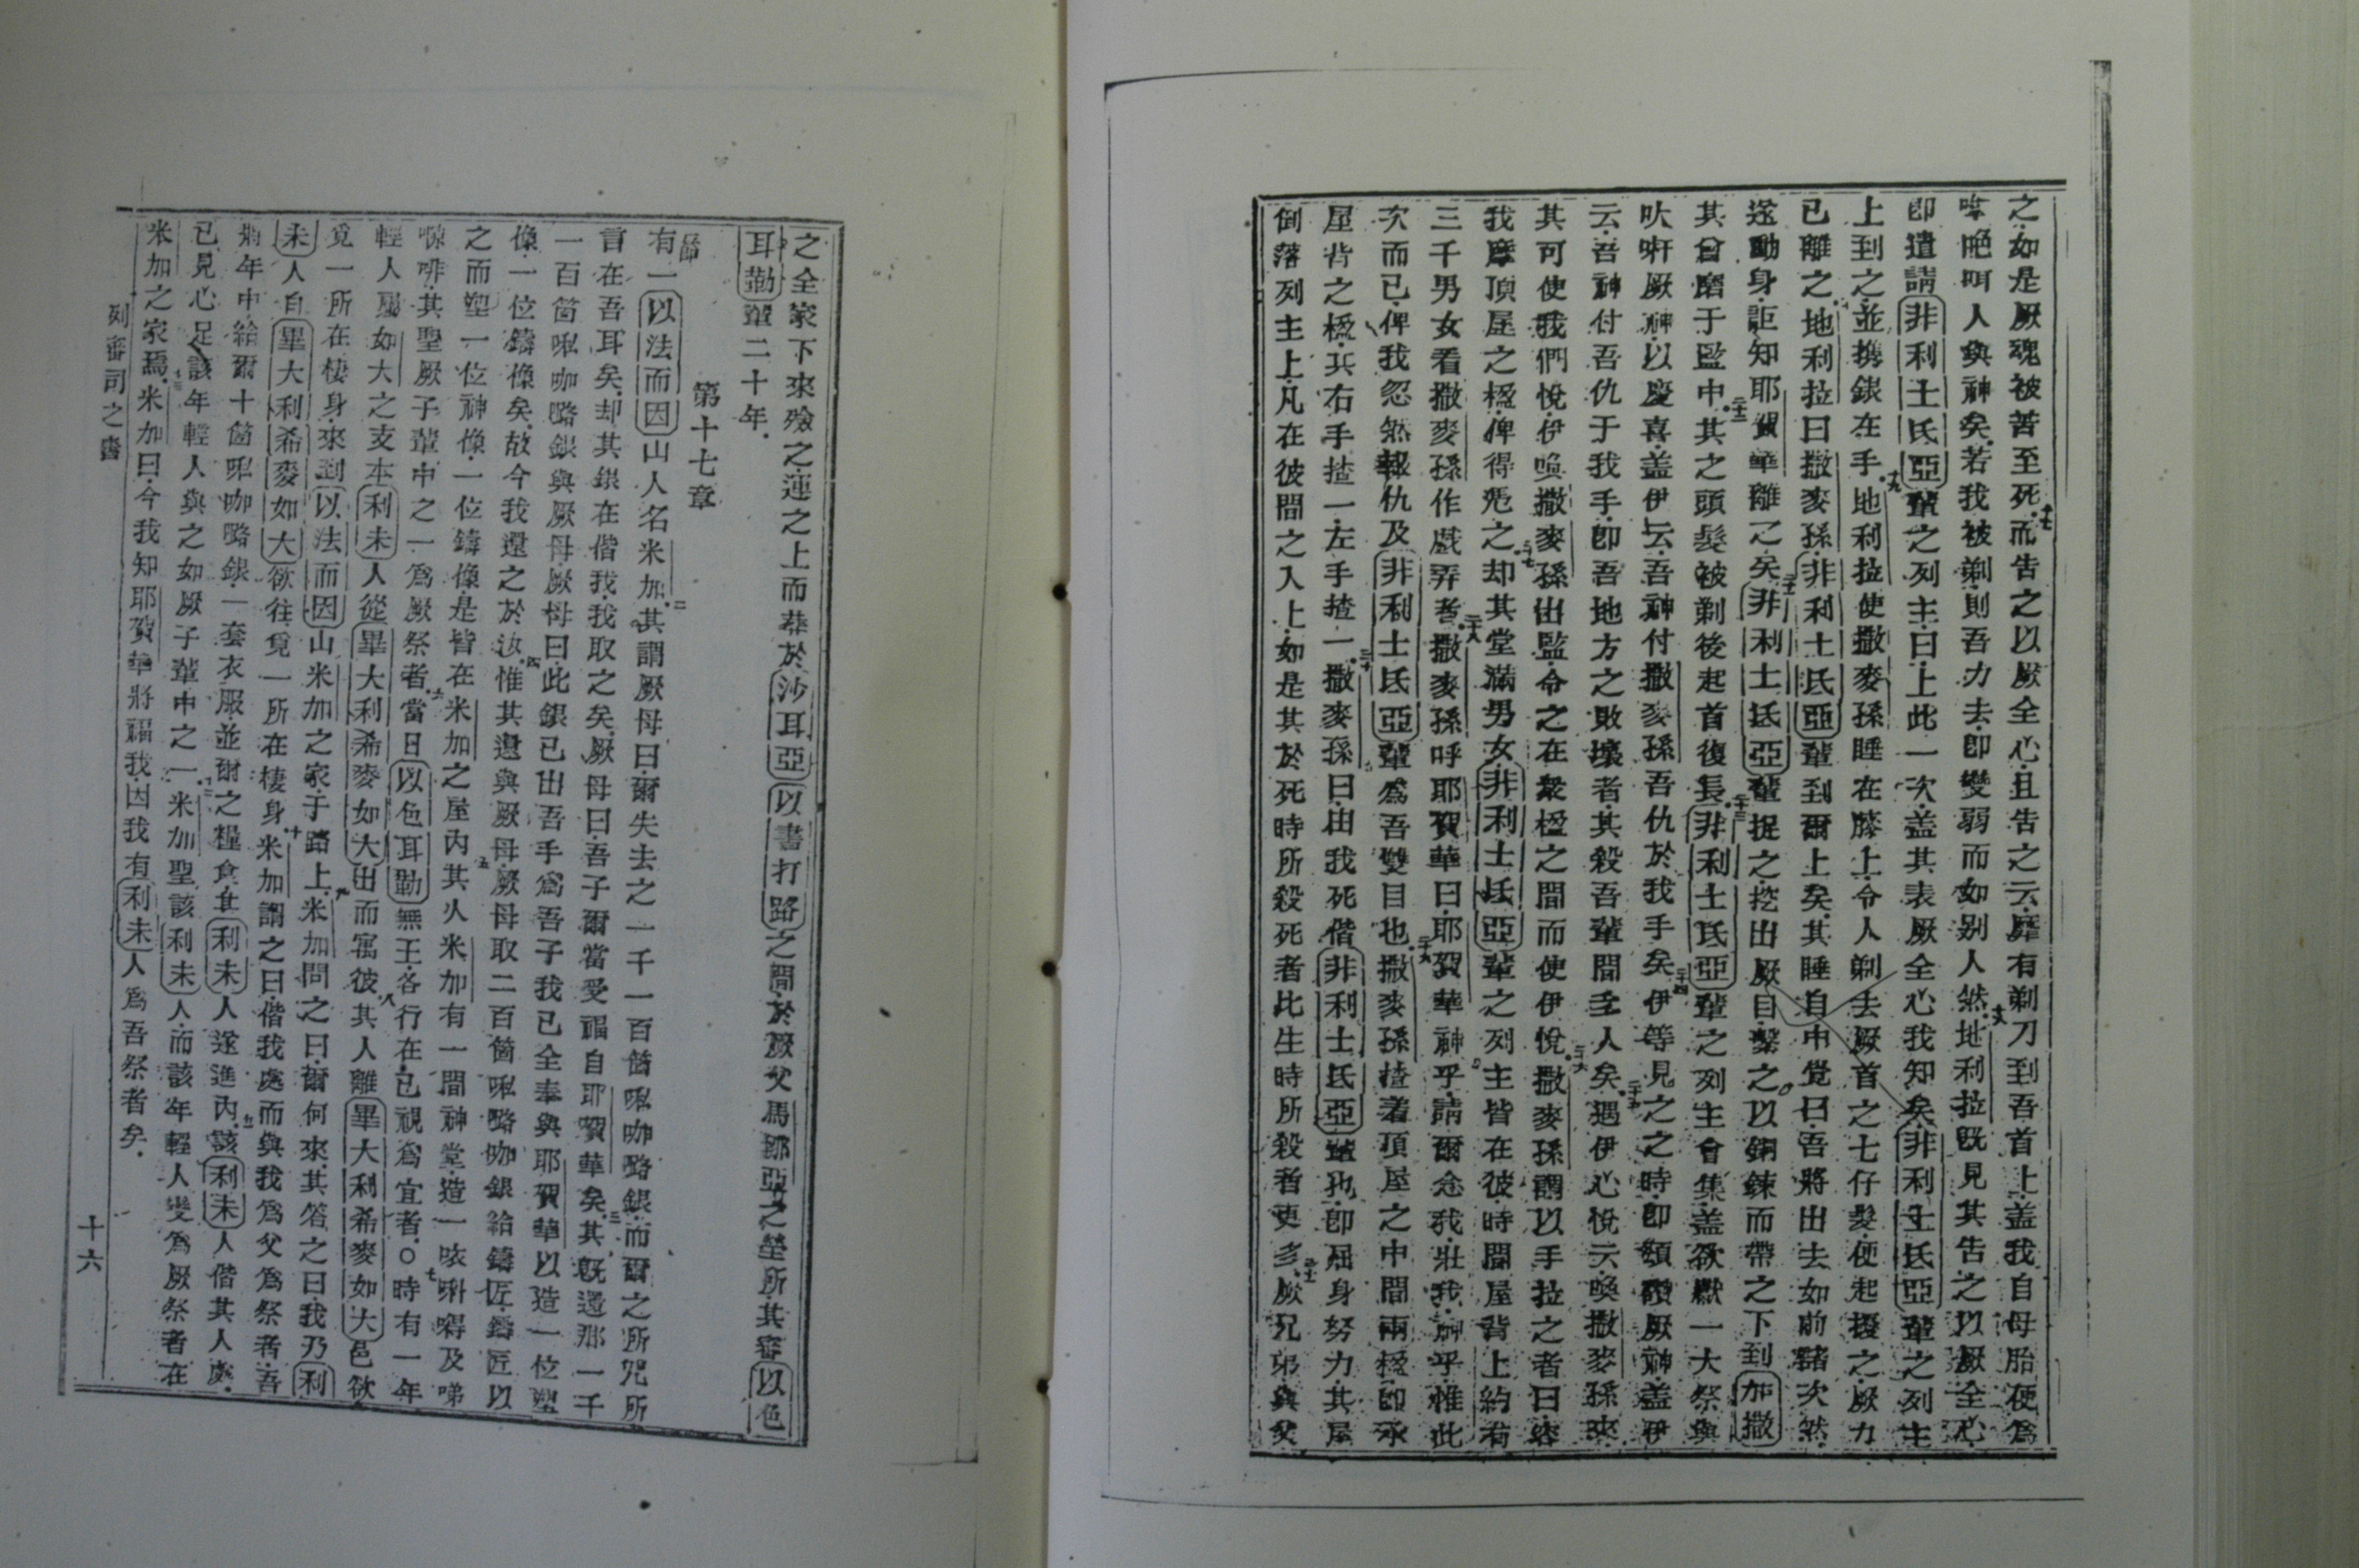 之如是厥魂被苦至死十七而告之以厥全心且告之云靡有剃刀到吾首上蓋我自母胎便為
㖿𠵽呵人與神矣若我被剃則吾力去即變弱而如別人然十八地利拉既見其告之以厥全心
即遣請非利士氏亞輩之列主曰上此一次蓋其表厥全心我知矣非利士氏亞輩之列主
上到之並攜銀在手十九地利拉使撒麥孫睡在膝上令人剃去厥首之七仔髮便起擾之厥力
已離之二十地利拉曰撒麥孫非利士氏亞輩到爾上矣其睡自中覺曰吾將出去如前諸次然
遂動身詎知耶賀華離之矣二十一非利士氏亞輩捉之挖出厥目繫之以銅鍊而帶之下到加撒
其曾磨于監中二十二其之頭髮被剃後起首復長二十三非利士氏亞輩之列主會集蓋欲獻一大祭與
厥神以慶喜蓋伊云吾神付撒麥孫吾仇於我手矣二十四伊等見之之時即頌讚厥神蓋伊
云吾神付吾仇于我手即吾地方之敗壞者其殺吾輩間多人矣二十五遇伊心悅云喚撒麥孫來
其可使我們悅伊喚撒麥孫出監令之在衆楹之間而使伊悅二十六撒麥孫謂以手拉之者曰容
我摩頂屋之楹俾得凴之二十七却其堂滿男女非利士氏亞輩之列主皆在彼時間屋背上約有
三千男女看撒麥孫作戲弄者二十八撒麥孫呼耶賀華曰耶賀華神乎請爾念我壯我神乎惟此
次而已俾我忽然報仇及非利士氏亞輩為吾雙目也二十九撒麥孫揸着頂屋之中間兩楹即承
屋背之楹其右手揸一左手揸一三十撒麥孫曰由我死偕非利士氏亞輩也即屈身努力其屋
倒落列主上凡在彼間之人上如是其於死時所殺死者比生時所殺者更多三十一厥兄弟與父
之全家下來殮之運之上而葬於沙耳亞以書打路之間於厥父馬挪亞之塋所其審以色
耳勒輩二十年
第十七章
一節有一以法而因山人名米加二其謂厥母曰爾失去之一千一百箇㖿咖略銀而爾之所咒所
言在吾耳矣却其銀在偕我我取之矣厥母曰吾子爾當受福自耶賀華矣三其既還那一千
一百箇㖿咖略銀與厥母厥母曰此銀已出吾手為吾子我已全奉與耶賀華以造一位塑
像一位鑄像矣故今我還之於汝四惟其還與厥母厥母取二百箇㖿略咖銀給鑄匠鑄匠以
之而塑一位神像一位鑄像是皆在米加之屋內五其人米加有一間神堂造一𠲖㖿嘚及嗁
㗅啡其聖厥子輩中之一為厥祭者六當日以色耳勒無王各行在己視為宜者○七時有一年
輕人屬如大之支本利未人從畢大利希麥如大出而寓彼八其人離畢大利希麥如大邑欲
覓一所在棲身來到以法而因山米加之家于路上九米加問之曰爾何來其答之曰我乃利
未人自畢大利希麥如大欲往覓一所在棲身十米加謂之曰偕我處而與我為父為祭者吾
將年中給爾十箇㖿咖略銀一套衣服並爾之糧食其利未人遂進內十一該利未人偕其人處
已見心足該年輕人與之如厥子輩中之一十二米加聖該利未人而該年輕人變為厥祭者在
米加之家焉十三米加曰今我知耶賀華將福我因我有利未人為吾祭者矣
列審司之書
十六